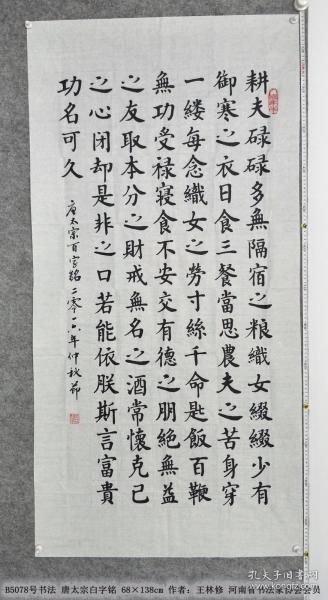 耕夫碌碌多無隔宿之粮織女綴綴少有
御寒之衣日食三餐當思農夫之苦身穿
一縷每念織女之勞寸絲千命匙飯百鞭
無功受禄寝食不安交有德之朋絶無益
之友取本分之財戒無名之酒常懷克己
之心閉却是非之口若能依朕斯言富貴
功名可久
唐太宗百字銘二零一六年仲秋節
B5078号书法 唐太宗白字铭 68×138cm 作者：王林修 河南省书法家协会会员
孔夫子旧书网